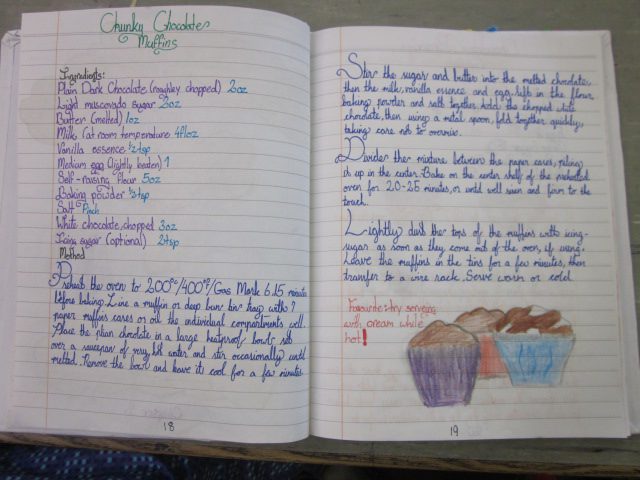 Chunky Chocolate
Muffins
Ingredients:
Plain Dark Chocolate (roughley chopped) 2oz
Light muscovado sugar 2oz
Butter (melted) 1oz
Milk (at room temperature 4floz
Vanilla essence ½tsp
Medium egg (lightly beaten) 1
Self-raising flour 5oz
Baking powder ½tsp
Salt Pinch
White chocolate, chopped 3oz
Icing sugar (optional) 2tsp
Method
Preheat the oven to 200°c/400°f/Gas Mark 6.15 minutes
before baking. Line a muffin or deep bun tin tray with 7
paper muffins cases or oil the individual compartments well.
Place the plain chocolate in a large heatproof bowl, set
over a saucepan of very hot water and stir occasionally until
melted. Remove the bowl and leave its cool for a few minutes.
18
Stir the sugar and butter into the melted chocolate,
then the milk, vanilla essence and egg. Sift in the flour,
baking powder and salt together. Add the chopped white
chocolate, then using a metal spoon, fold together quickly,
taking care not to overmix.
Divide the mixture between the paper cases, piling
it up in the center. Bake on the center shelf of the preheated
oven for 20-25 minutes, or until well risen and firm to the
touch.
Lightly dust the tops of the muffins with icing-
sugar as soon as they come out of the oven, if using.
Leave the muffins in the tins for a few minutes, then
transfer to a wire rack. Serve warm or cold.
Favourite: try serving
with cream while
hot!
19